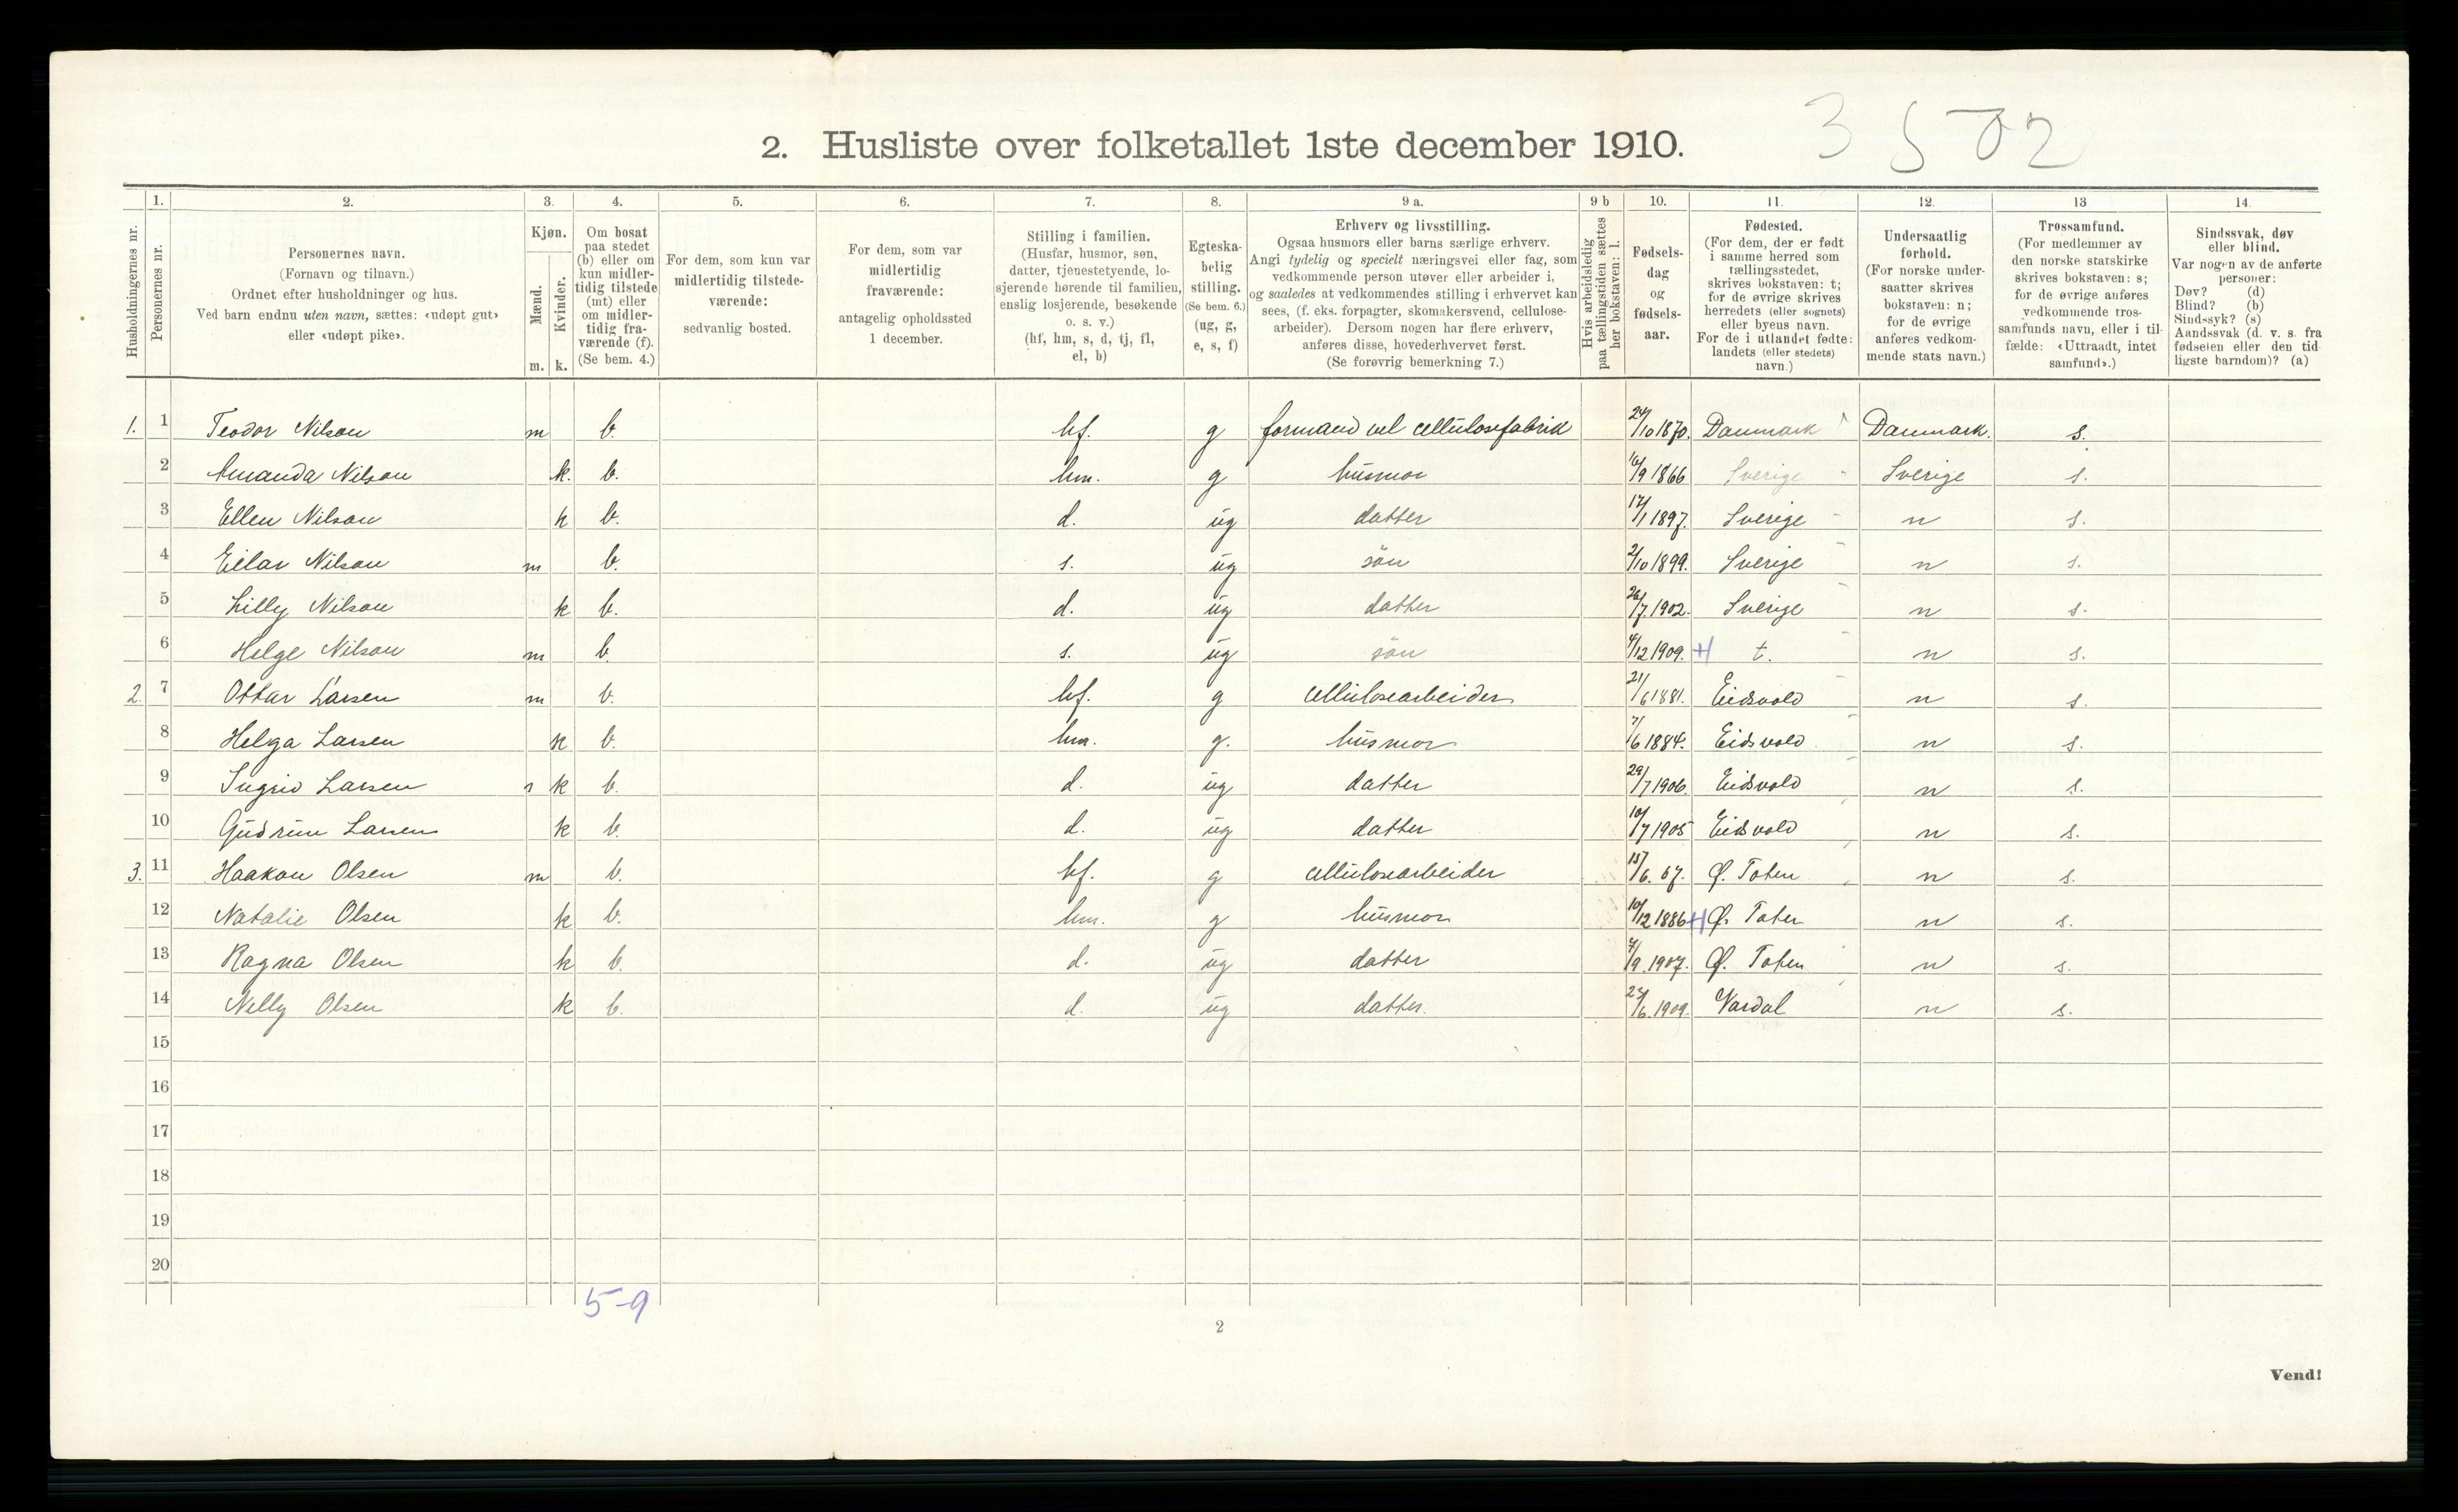 3 502
2. Husliste over folketallet 1ste december 1910.
1. 2. 3. 4. 5. 6. 7. 8. 9 a. 9 b 10. 11. 12. 13 14
Husholdningernes nr.
Personernes nr.
Personernes navn.
(Fornavn og tilnavn.)
Ordnet efter husholdninger og hus.
Ved barn endnu uten navn, sættes: «udøpt gut»
eller «udøpt pike».
Kjøn.
Mænd.
Kvinder.
m. k.
Om bosat
paa stedet
(b) eller om
kun midler-
tidig tilstede
(mt) eller
om midler-
tidig fra-
værende (f).
(Se bem. 4.)
For dem, som kun var
midlertidig tilstede-
værende:
sedvanlig bosted.
For dem, som var
midlertidig
fraværende:
antagelig opholdssted
1 december.
Stilling i familien.
(Husfar, husmor, søn,
datter, tjenestetyende, lo-
sjerende hørende til familien,
enslig losjerende, besøkende
o. s. v.)
(hf, hm, s, d, tj, fl,
el, b)
Egteska-
belig
stilling.
(Se bem. 6.)
(ug, g,
e, s, f)
Erhverv og livsstilling.
Ogsaa husmors eller barns særlige erhverv.
Angi tydelig og specielt næringsvei eller fag, som
vedkommende person utøver eller arbeider i,
og saaledes at vedkommendes stilling i erhvervet kan
sees, (f. eks. forpagter, skomakersvend, cellulose-
arbeider). Dersom nogen har flere erhverv,
anføres disse, hovederhvervet først.
(Se forøvrig bemerkning 7.)
Hvis arbeidsledig
paa tællingstiden sættes
her bokstaven: l.
Fødsels-
dag
og
fødsels-
aar.
Fødested.
(For dem, der er født
i samme herred som
tællingsstedet,
skrives bokstaven: t;
for de øvrige skrives
herredets (eller sognets)
eller byens navn.
For de i utlandet fødte:
landets (eller stedets)
navn.)
Undersaatlig
forhold.
(For norske under-
saatter skrives
bokstaven: n;
for de øvrige
anføres vedkom-
mende stats navn.)
Trossamfund.
(For medlemmer av
den norske statskirke
skrives bokstaven: s;
for de øvrige anføres
vedkommende tros-
samfunds navn, eller i til-
fælde: «Uttraadt, intet
samfund».)
Sindssvak, døv
eller blind.
Var nogen av de anførte
personer:
Døv? (d)
Blind? (b)
Sindssyk? (s)
Aandssvak (d. v. s. fra
fødselen eller den tid-
ligste barndom)? (a)
1. 1 Teodor Nilson m b. hf. g formand vel cellulosefabrik 24/10 1870. Danmark Danmark. s.
2 Amanda Nilson k. b. hm. g husmor 16/9 1866 Sverige Sverige s.
3 Ellen Nilson k b. d. ug datter 17/1 1897. Sverige n s.
4 Eilar Nilson m b. s. ug sön 2/10 1899. Sverige n s.
5 Lilly Nilson k b. d. ug datter 26/7 1902. Sverige n s.
6 Helge Nilson m b. s. ug sön 4/12 1909. t. n s.
2. 7 Ottar Larsen m b. hf. g cellulosearbeider 21/6 1881. Eidsvold n s.
8 Helga Larsen k b. hm. g. husmor 7/6 1884. Eidsvold n s.
9 Ingrid Larsen k b. d. ug datter 29/7 1906. Eidsvold n s.
10 Gudrun Larsen k b. d. ug datter 10/7 1905 Eidsvold n s.
3. 11 Haakon Olsen m b. hf. g cellulosearbeider 15/6. 67. Ø. Toten n s.
12 Natalie Olsen k b. hm. g husmor 10/12 1886 Ø. Toten n s.
13 Ragna Olsen k b. d. ug datter 7/9. 1907. Ø. Toten n s.
14 Nelly Olsen k b. d. ug datter. 27/6. 1909. Vardal n s.
15
16
17
18
19
20
5-9
2
Vend!